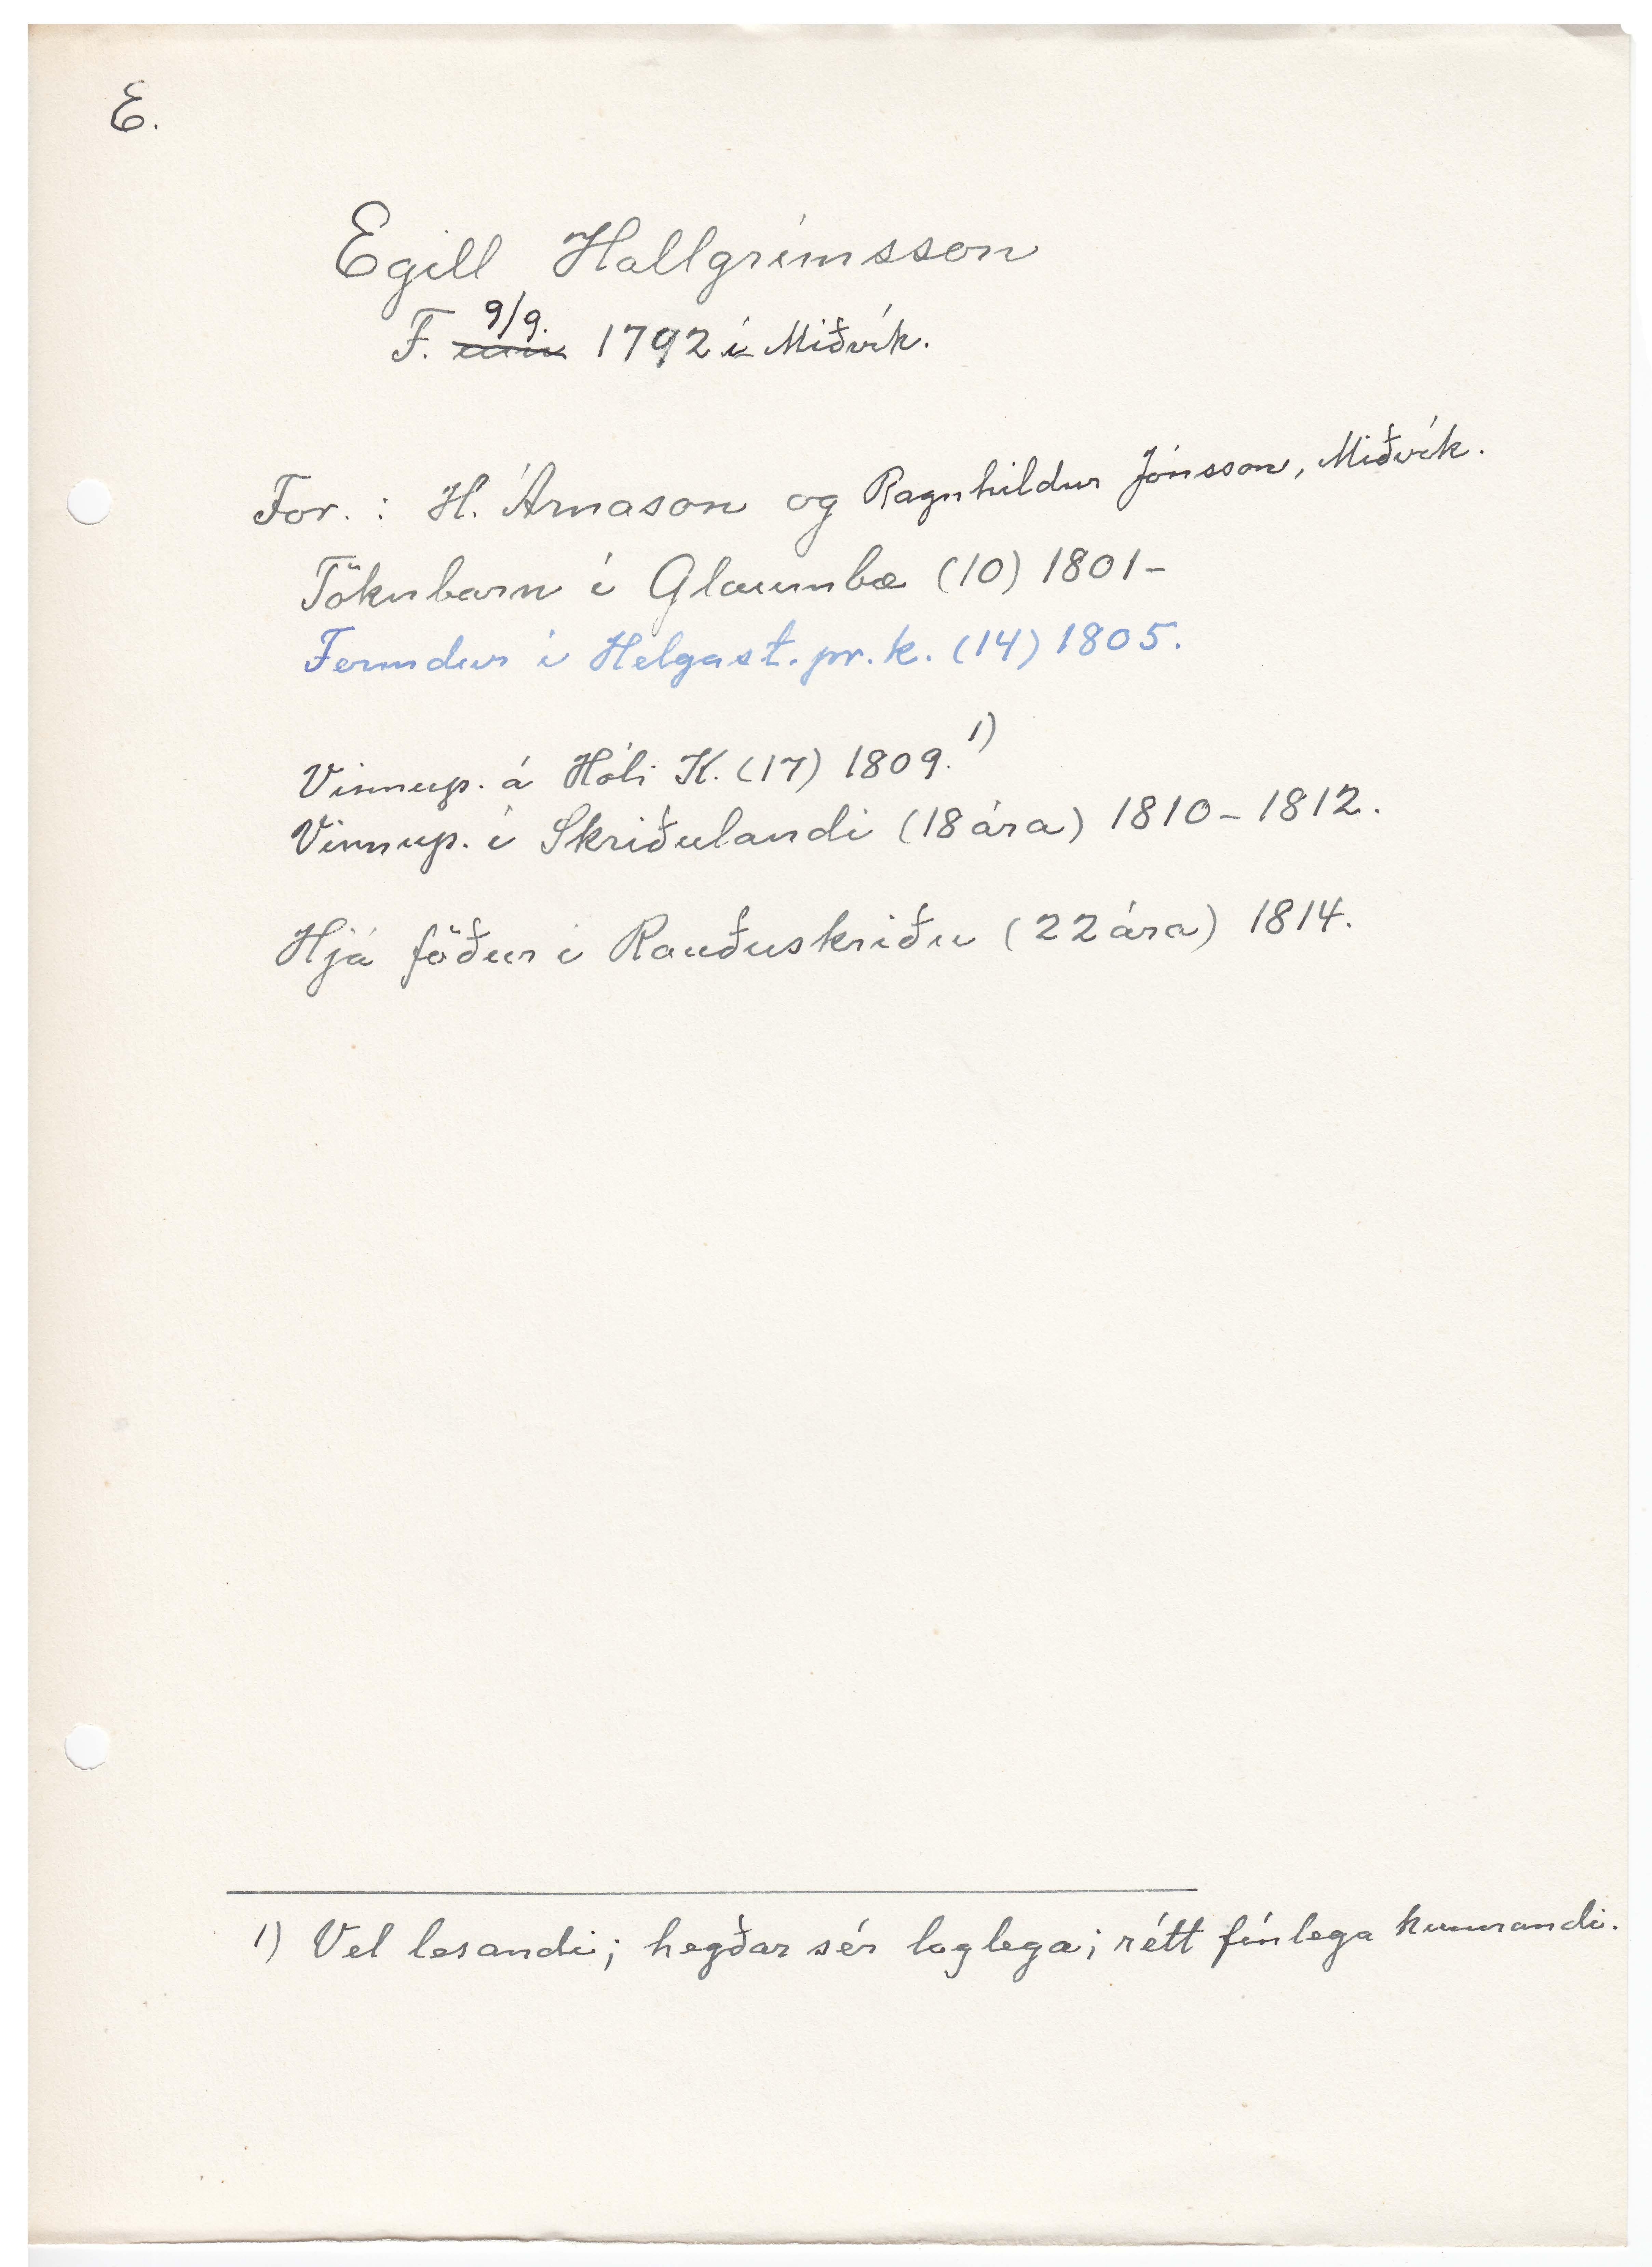 E.
Egill Hallgrímsson
F. 9/9. 1792 í Miðvík.
For. : H. Árnason og Ragnhildur Jónsson, Miðvík.
Tökubarn í Glaumbæ (10) 1801-
Fermdur í Helgast. pr. k. (14) 1805.
Vinnup. á Hóli K. (17) 1809. 1)
Vinnup. í Skriðulandi (18 ára) 1810-1812.
Hjá föður í Rauðuskriðu (22 ára) 1814.
1) Vel lesandi; hegðar sér laglega; rétt fínlega kunnandi.